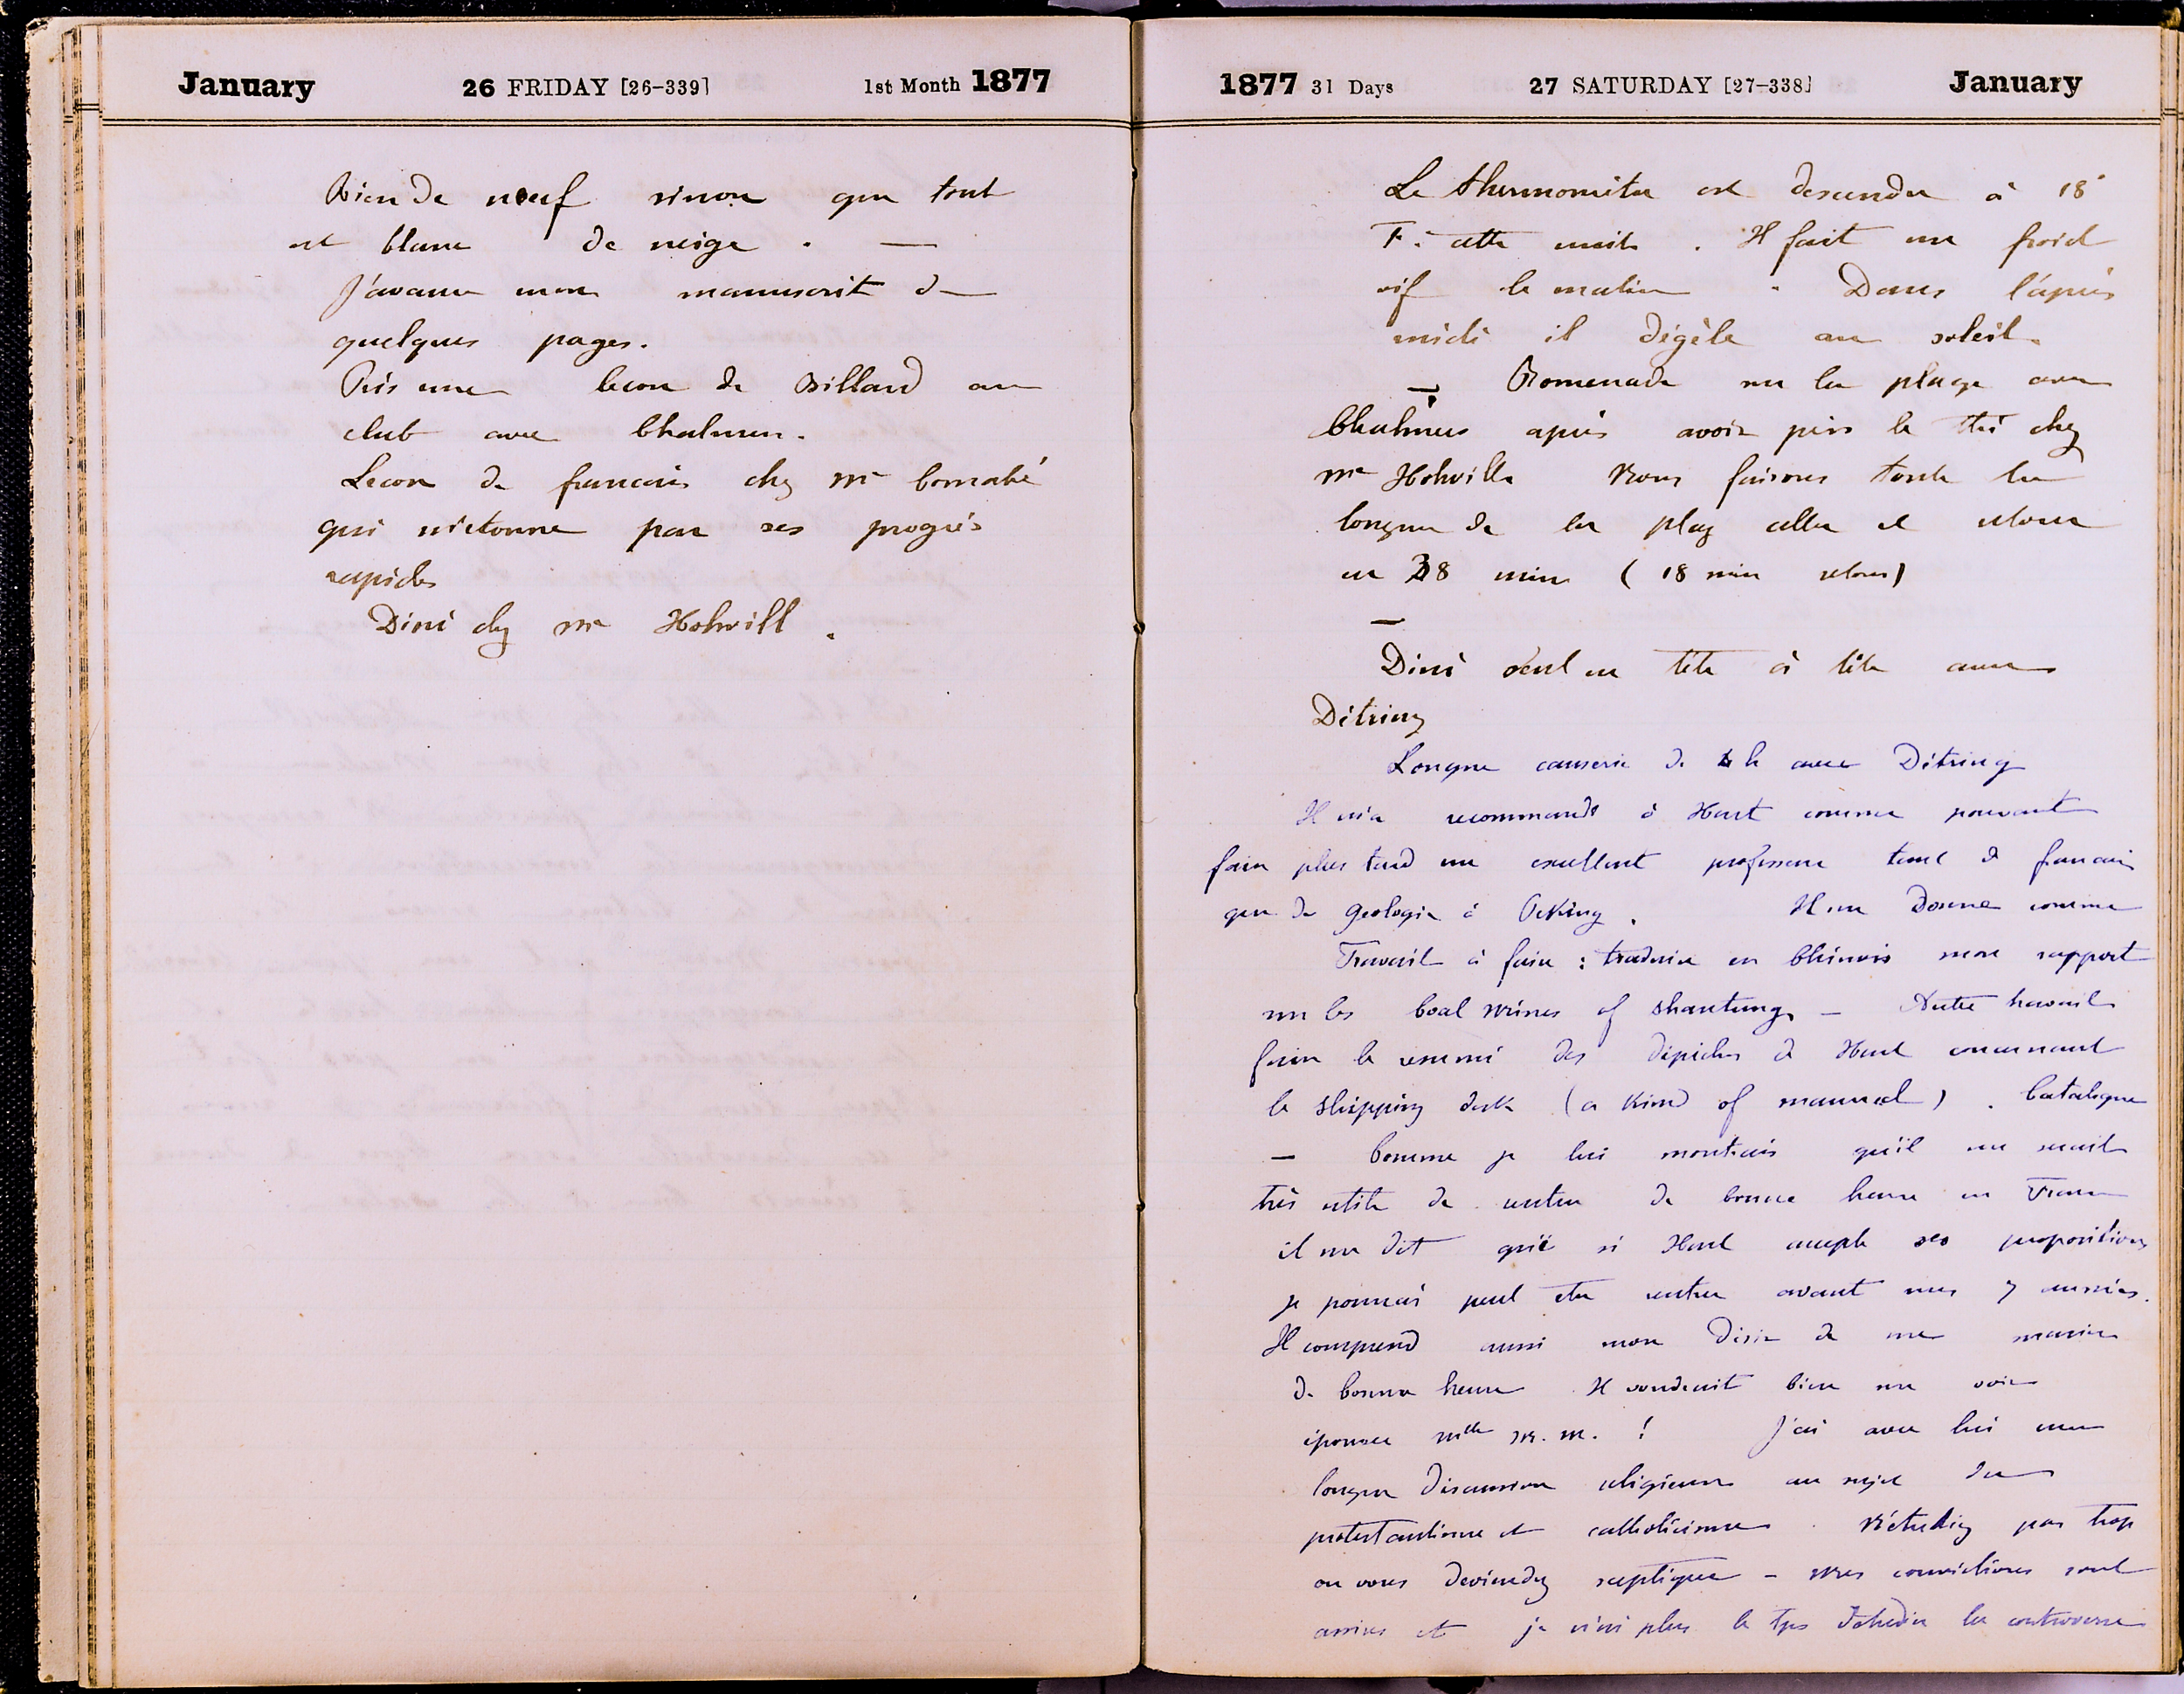 January 26 FRIDAY [26-339] 1st Month 1877
Rien de neuf sinon que tout
est blanc de neige . —
J'avance mon manuscrit de
quelques pages.
Pris une lecon de Billard au
club avec Chalmers.
Lecon de francais chez Mr
qui m'etonne par ses progrès
rapides
Diné chez Mr Hohwill .
1877 31 Days 27 SATURDAY [27-338] January
Le thermomètre est descendu à 18°
F. cette nuit . Il fait un froid
vif le matin . Dans l'après
midi il dégèle au soleil.
— Promenade sur la plage avec
Chalmers après avoir pris le thé chez
Mr Hohwill Nous faisons toute la
longueur de la plage aller et retour
en 38 min (18 min retour)
—
Diné seul en tête à tête avec
Détring
Longue causerie de 4 h avec Détring
Il m'a recommandé à Hart comme pouvant
faire plus tard un excellent professeur tant de francais
que de geologie à Peking . Il me donne comme
Travail à faire : traduire en Chinois mon rapport
sur les Coal Mines of Shantung. — Autre travail
faire le resumé des dépêches de Hart concernant
le shipping desk (a kind of manual) . Catalogue
— Comme je lui montrais qu'il me serait
très utile de rentrer de bonne heure en France
il me dit que si Hart accepte ses propositions
je pourrai peut etre rentrer avant mes 7 années.
Il comprend aussi mon désir de me marier
de bonne heure Il voudrait bien me voir
épouser Mlle M. M. ! J'ai avec lui une
longue discussion religieuse au sujet du
protestantisme et catholicisme . N'étudiez pas trop
ou vous deviendrez sceptique — Mes convictions sont
assises et je n'ai plus le tps d'etudier la controverse